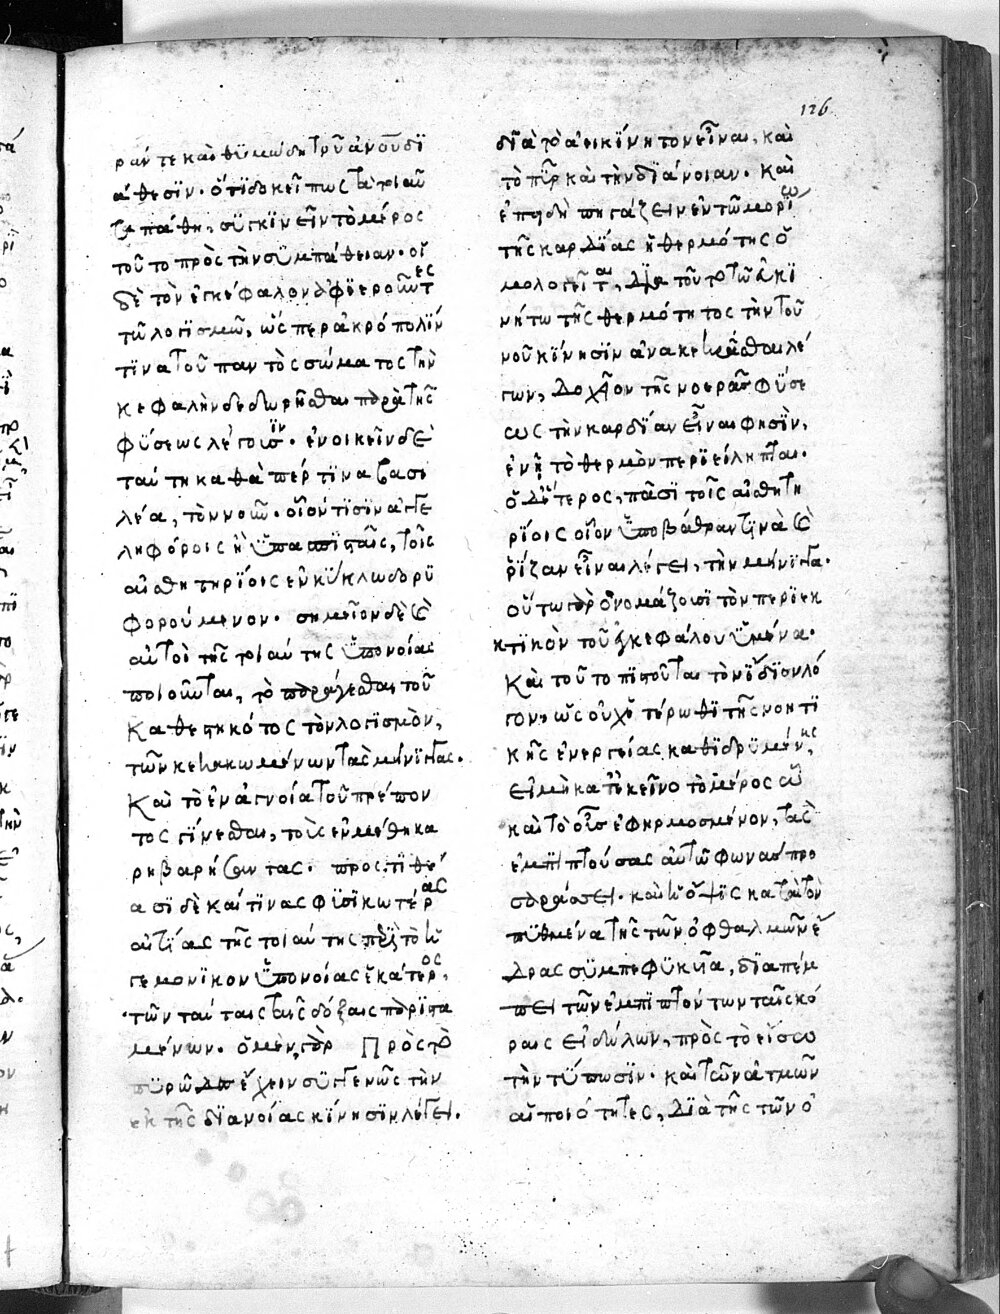 ράν τε καὶ θυμώδη τοῦ ἀνοῦ δϊ
άθεσϊν. ὅτϊ δοκεῖ πως τὰ τοιαῦ
τα πάθη, συγκινεῖν τὸ μέρος
τοῦτο πρὸς τὴν συμπάθειαν. οἱ
δὲ τὸν ἐγκέφαλον ἀφϊεροῦντες
τῶ λογϊσμῶ, ὥς περ ἀκρόπολϊν
τϊνα τοῦ παντὸς σώματος τὴν
κεφαλὴν δεδωρῆσθαι παρὰ τῆς
φύσεως λέγουσϊν. ἐνοικεῖν δὲ
ταύτη καθάπερ τϊνα βασι
λέα, τὸν νοῦν. οἷόν τϊσϊν ἀγγε
ληφόροις ἢ ὑπασπισταῖς, τοῖς
αἰσθητηρίοις ἐν κύκλω δορυ
φορούμενον. σημεῖον δὲ καὶ
αὐτοὶ τῆς τοιαύτης ὑπονοίας
ποιοῦνται, τὸ παράγεσθαι τοῦ
καθεστηκότος τὸν λογϊσμὸν,
τῶν κεκακωμένων τὰς μήνϊγγας.
Καὶ τὸ ἐν ἀγνοία τοῦ πρέπον
τος γίνεσθαι, τοὺς ἐν μέθη κα
ρηβαρήσαντας. προς τϊθέ
ασϊ δὲ καί τινας φυσϊκωτέρας
αἰτίας τῆς τοιαύτης περὶ τὸ ἡ
γεμονϊκὸν ὑπονοίας ἑκάτερος,
τῶν ταύταις ταῖς δόξαις παρϊστα
μένων. ὁ μὲν γὰρ Πρὸς τὸ
πυρῶδες ἔχειν συγγενῶς τὴν
ἐκ τῆς δϊανοίας κίνησϊν λέγει.
δϊὰ τὸ ἀεικίνητον εἶναι, καὶ
τὸ πῦρ καὶ τὴν δϊάνοιαν. Καὶ
ἐπειδὴ πηγάζειν ἐν τῶ μορίω
τῆς καρδίας ἡ θερμότης ὁ
μολογεῖται, Διὰ τοῦτο τῶ εὐκϊ
νήτω τῆς θερμότητος τὴν τοῦ
νοῦ κίνησϊν ἀνακεκρᾶσθαι λέ
γων, Δοχεῖον τῆς νοερᾶς φύσε
ως τὴν καρδίαν εἶναι φησὶν,
ἐν ἧ τὸ θερμὸν περϊείληπται.
ὁ Δεύτερος, πᾶσϊ τοῖς αἰσθητη
ρίοις οἷον ὑποβάθραν τινὰ καὶ
ῥίζαν εἶναι λέγει, τὴν μήνϊγγα.
οὕτω γὰρ ὀνομάζουσι τὸν περϊεκ
κτϊκὸν τοῦ ἐγκεφάλου ὑμένα.
Καὶ τοῦτο πϊστοῦται τὸν ἴδϊον λό
γον, ὡς οὐχ ἑτέρωθϊ τῆς νοητϊ
κῆς ἐνεργείας καθϊδρυμένης,
εἰ μὴ κατ ἐκεῖνο τὸ μέρος ὧ
καὶ τὸ οὖς ἐφηρμοσμένον, τὰς
ἐμπϊπτούσας αὐτῶ φωνὰς προ
σαράσσει. καὶ ἡ ὄψις κατὰ τὸν
πυθμένα τῆς τῶν ὀφθαλμῶν ἕ
δρας συμπεφυκυῖα, διαπέμ
πει τῶν ἐμπϊπτόντων ταῖς κό
ραις εἰδώλων, πρὸς τὸ εἴσω
τὴν τύπωσϊν. καὶ τῶν ἀτμῶν
αἱ ποιότητες, Διὰ τῆς τῶν ὀ
126